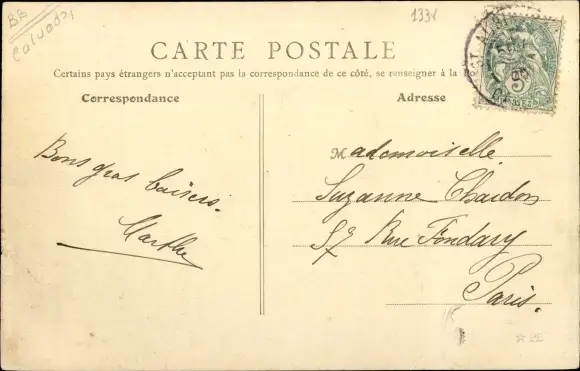 BB
Calvados
133V
CARTE POSTALE
Certains pays étrangers n'acceptant pas la correspondance de ce côté, se renseigner à la
Correspondance
Adresse
Bons gros baisers.
Marthe
Mademoiselle
Suzanne Chardon
57 Rue Fondary
Paris.